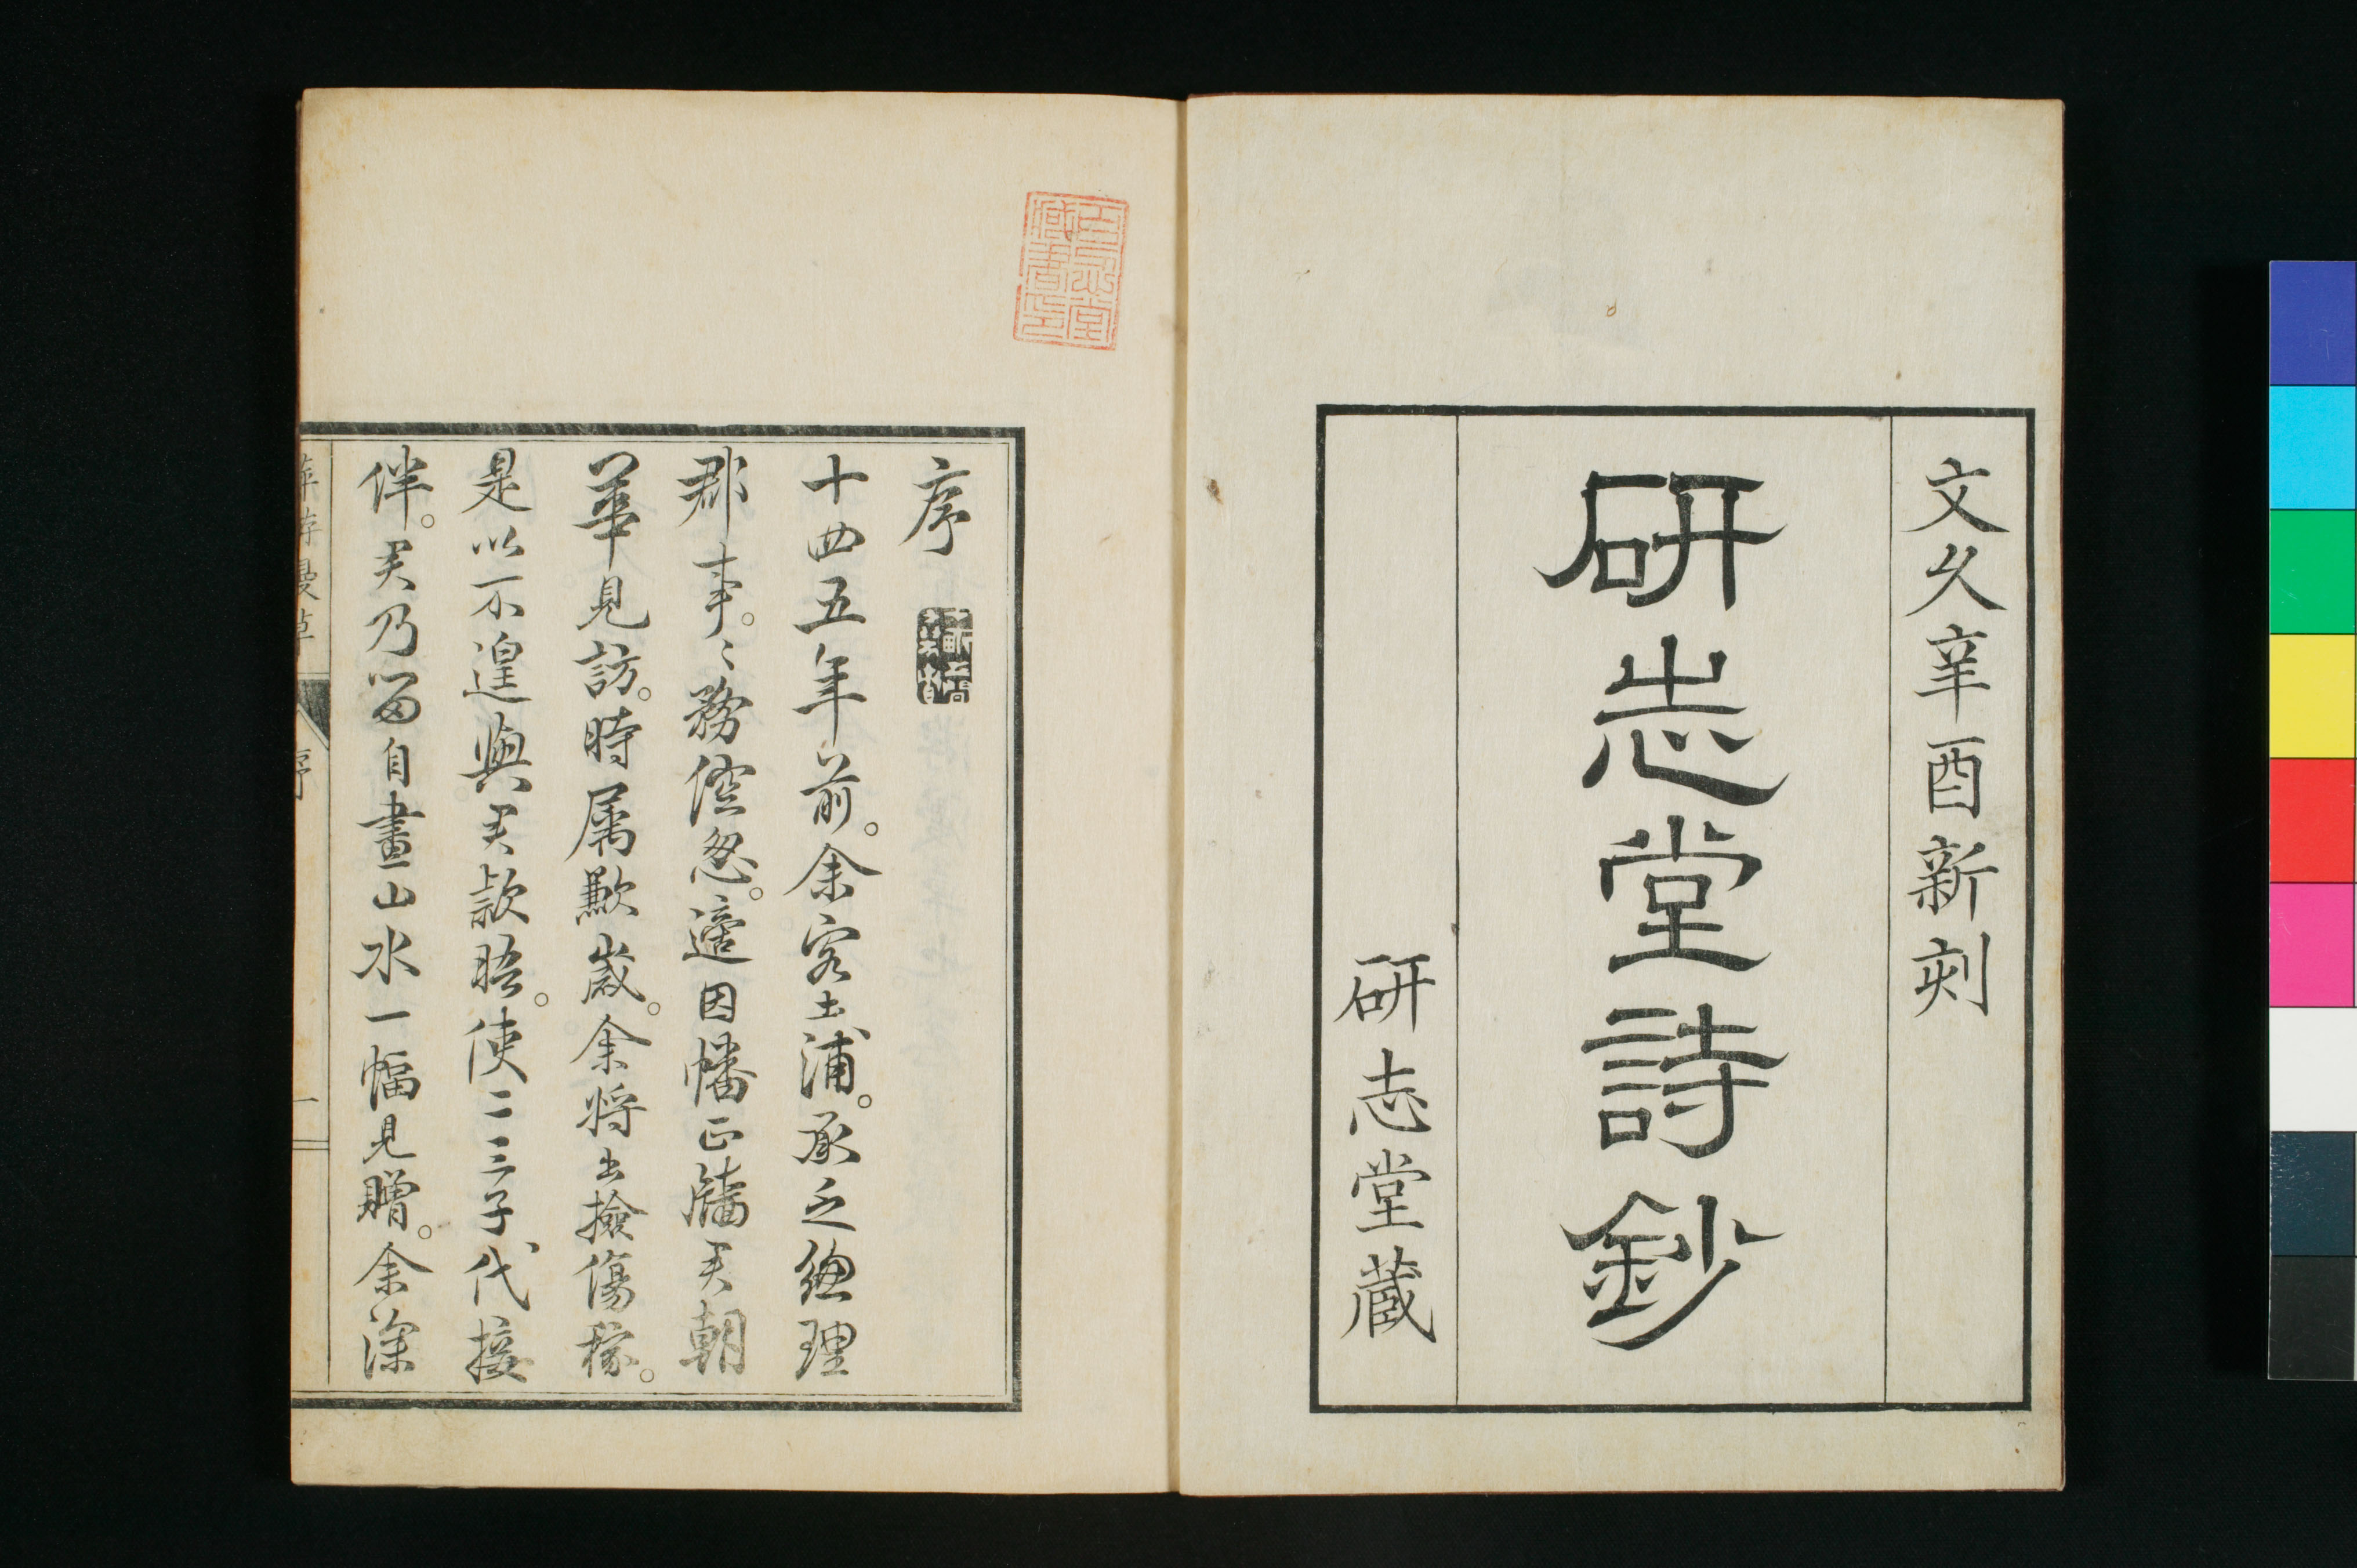 文久辛酉新刻
研志堂詩鈔
研志堂蔵
序
十四五年前。余客土浦。承乏總理
郡事。〻務倥怱。適因幡正牆君朝
華見訪。時属歉歳。余將出撿傷稼。
是以不遑與君款晤。使二三子代接
伴。君乃留自畫山水一幅見贈。余深
序
一